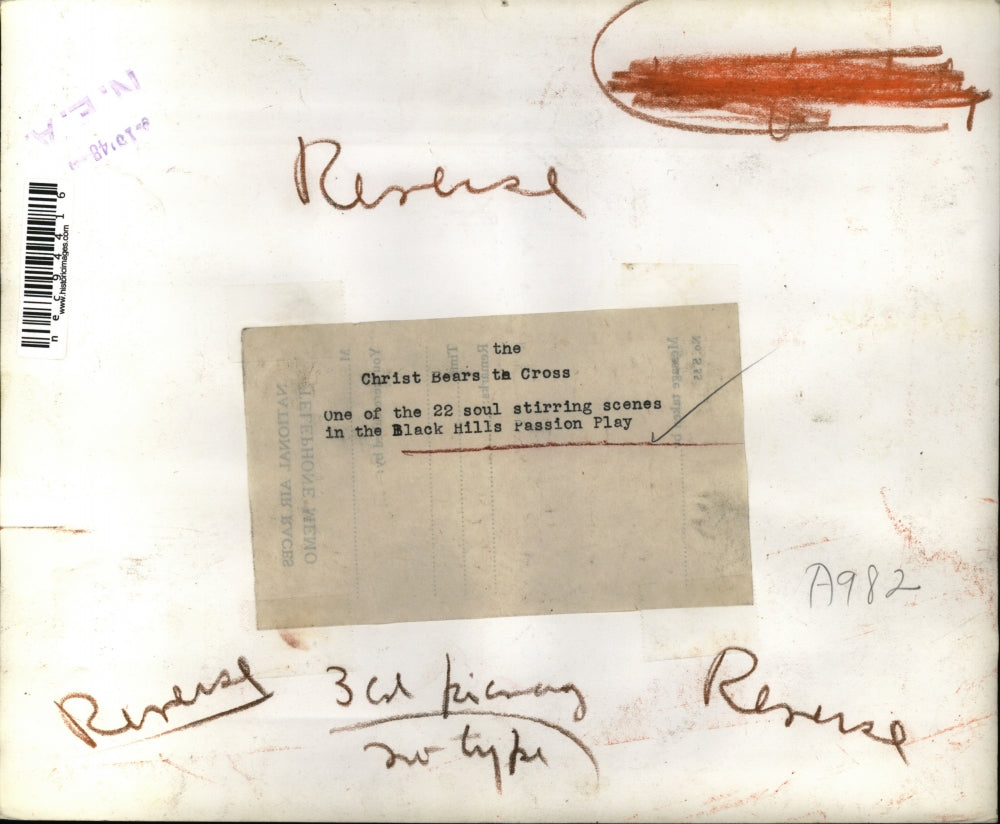 N.E.A.
Reverse
nec94416
www.historicimages.com
the
Christ Bears th Cross
One of the 22 soul stirring scenes
in the Black Hills Passion Play
No. 555
Message taken by
Remarks
NATIONAL AIR RACES
TELEPHONE MEMO
A982
Reverse
3 col
no type
Reverse